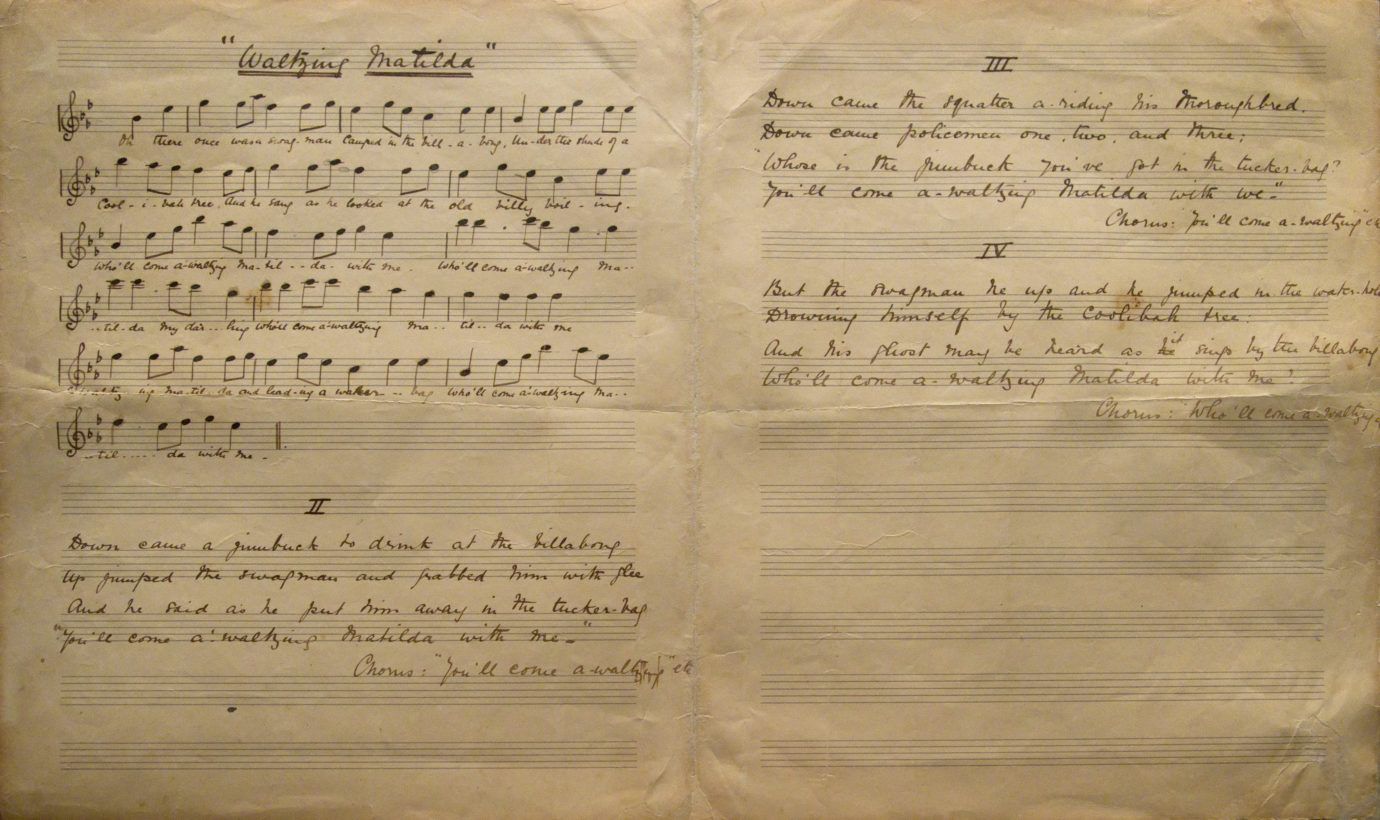 "Waltzing Matilda"
Oh there once was a swag-man camped in the bill-a-bong, Un-der the shade of a
Cool-i-bah tree, And he sang as he looked at the old billy boil-ing.
Who'll come a-waltzing Ma-til--da- with me. Who'll come a-waltzing Ma--
--til-da my dar--ling who'll come a-waltzing ma-- til--da with me
Waltz-ing Ma-til-da and lead-ing a water--bag Who'll come a-waltzing Ma--
--til---- da with me-
II
Down came a jumbuck to drink at the billabong
Up jumped the swagman and grabbed him with glee
And he said as he put him away in the tucker-bag
"You'll come a-waltzing Matilda with me-"
Chorus: "You'll come a-waltzing" etc
III
Down came the squatter a-riding his thoroughbred.
Down came policemen one, two, and three;
"Whose is the jumbuck you've got in the tucker-bag?
You'll come a-waltzing Matilda with we-"
Chorus: "You'll come a-waltzing"
IV
But the swagman he up and he jumped in the water-hole
Drowning himself by the Coolibah tree:
And his ghost may be heard as it sings by the billabong
Who'll come a-waltzing Matilda with me?
Chorus: "Who'll come a-waltzing